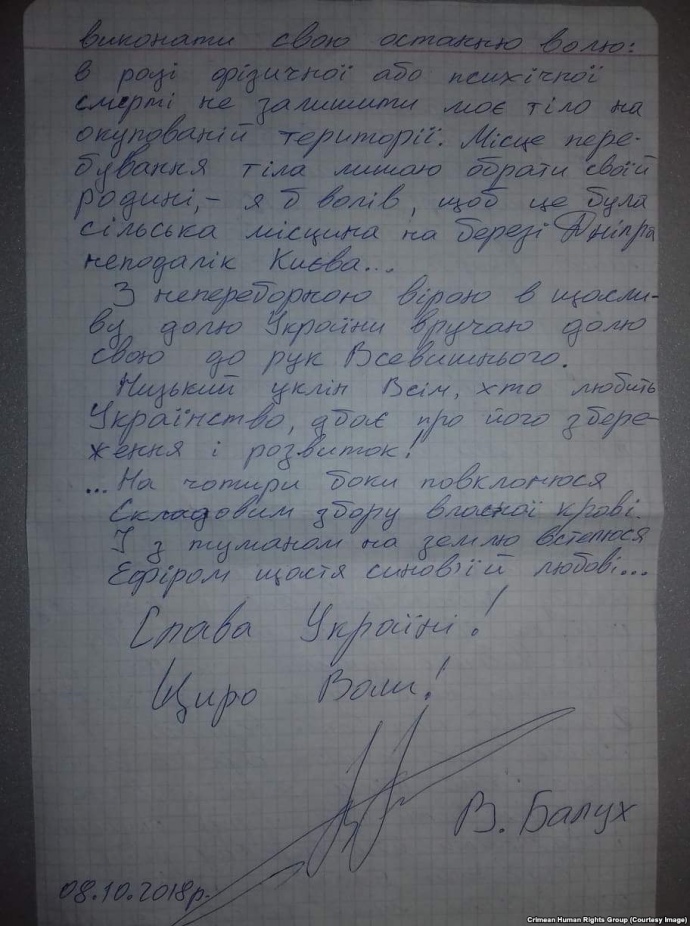 виконати свою останню волю:
в разі фізичної або психічної
смерті не залишити моє тіло на
окупованій території. Місце пере-
бування тіла лишаю обрати своїй
родині, – я б волів, щоб це була
сільська місцина на березі Дніпра
неподалік Києва...
З непереборною вірою в щасли-
ву долю України вручаю долю
свою до рук Всевишнього.
Низький уклін Всім, хто любить
Українство, дбає про його збере-
ження і розвиток!
...На чотири боки повклонюся
Складовим збору власної крові.
І з туманом на землю встелюся
Ефіром щастя синовзїй любові...
Слава Україні!
Щиро Воли!
В. Балух
08.10.2018р.
Crimean Human Rights Group (Courtesy Image)